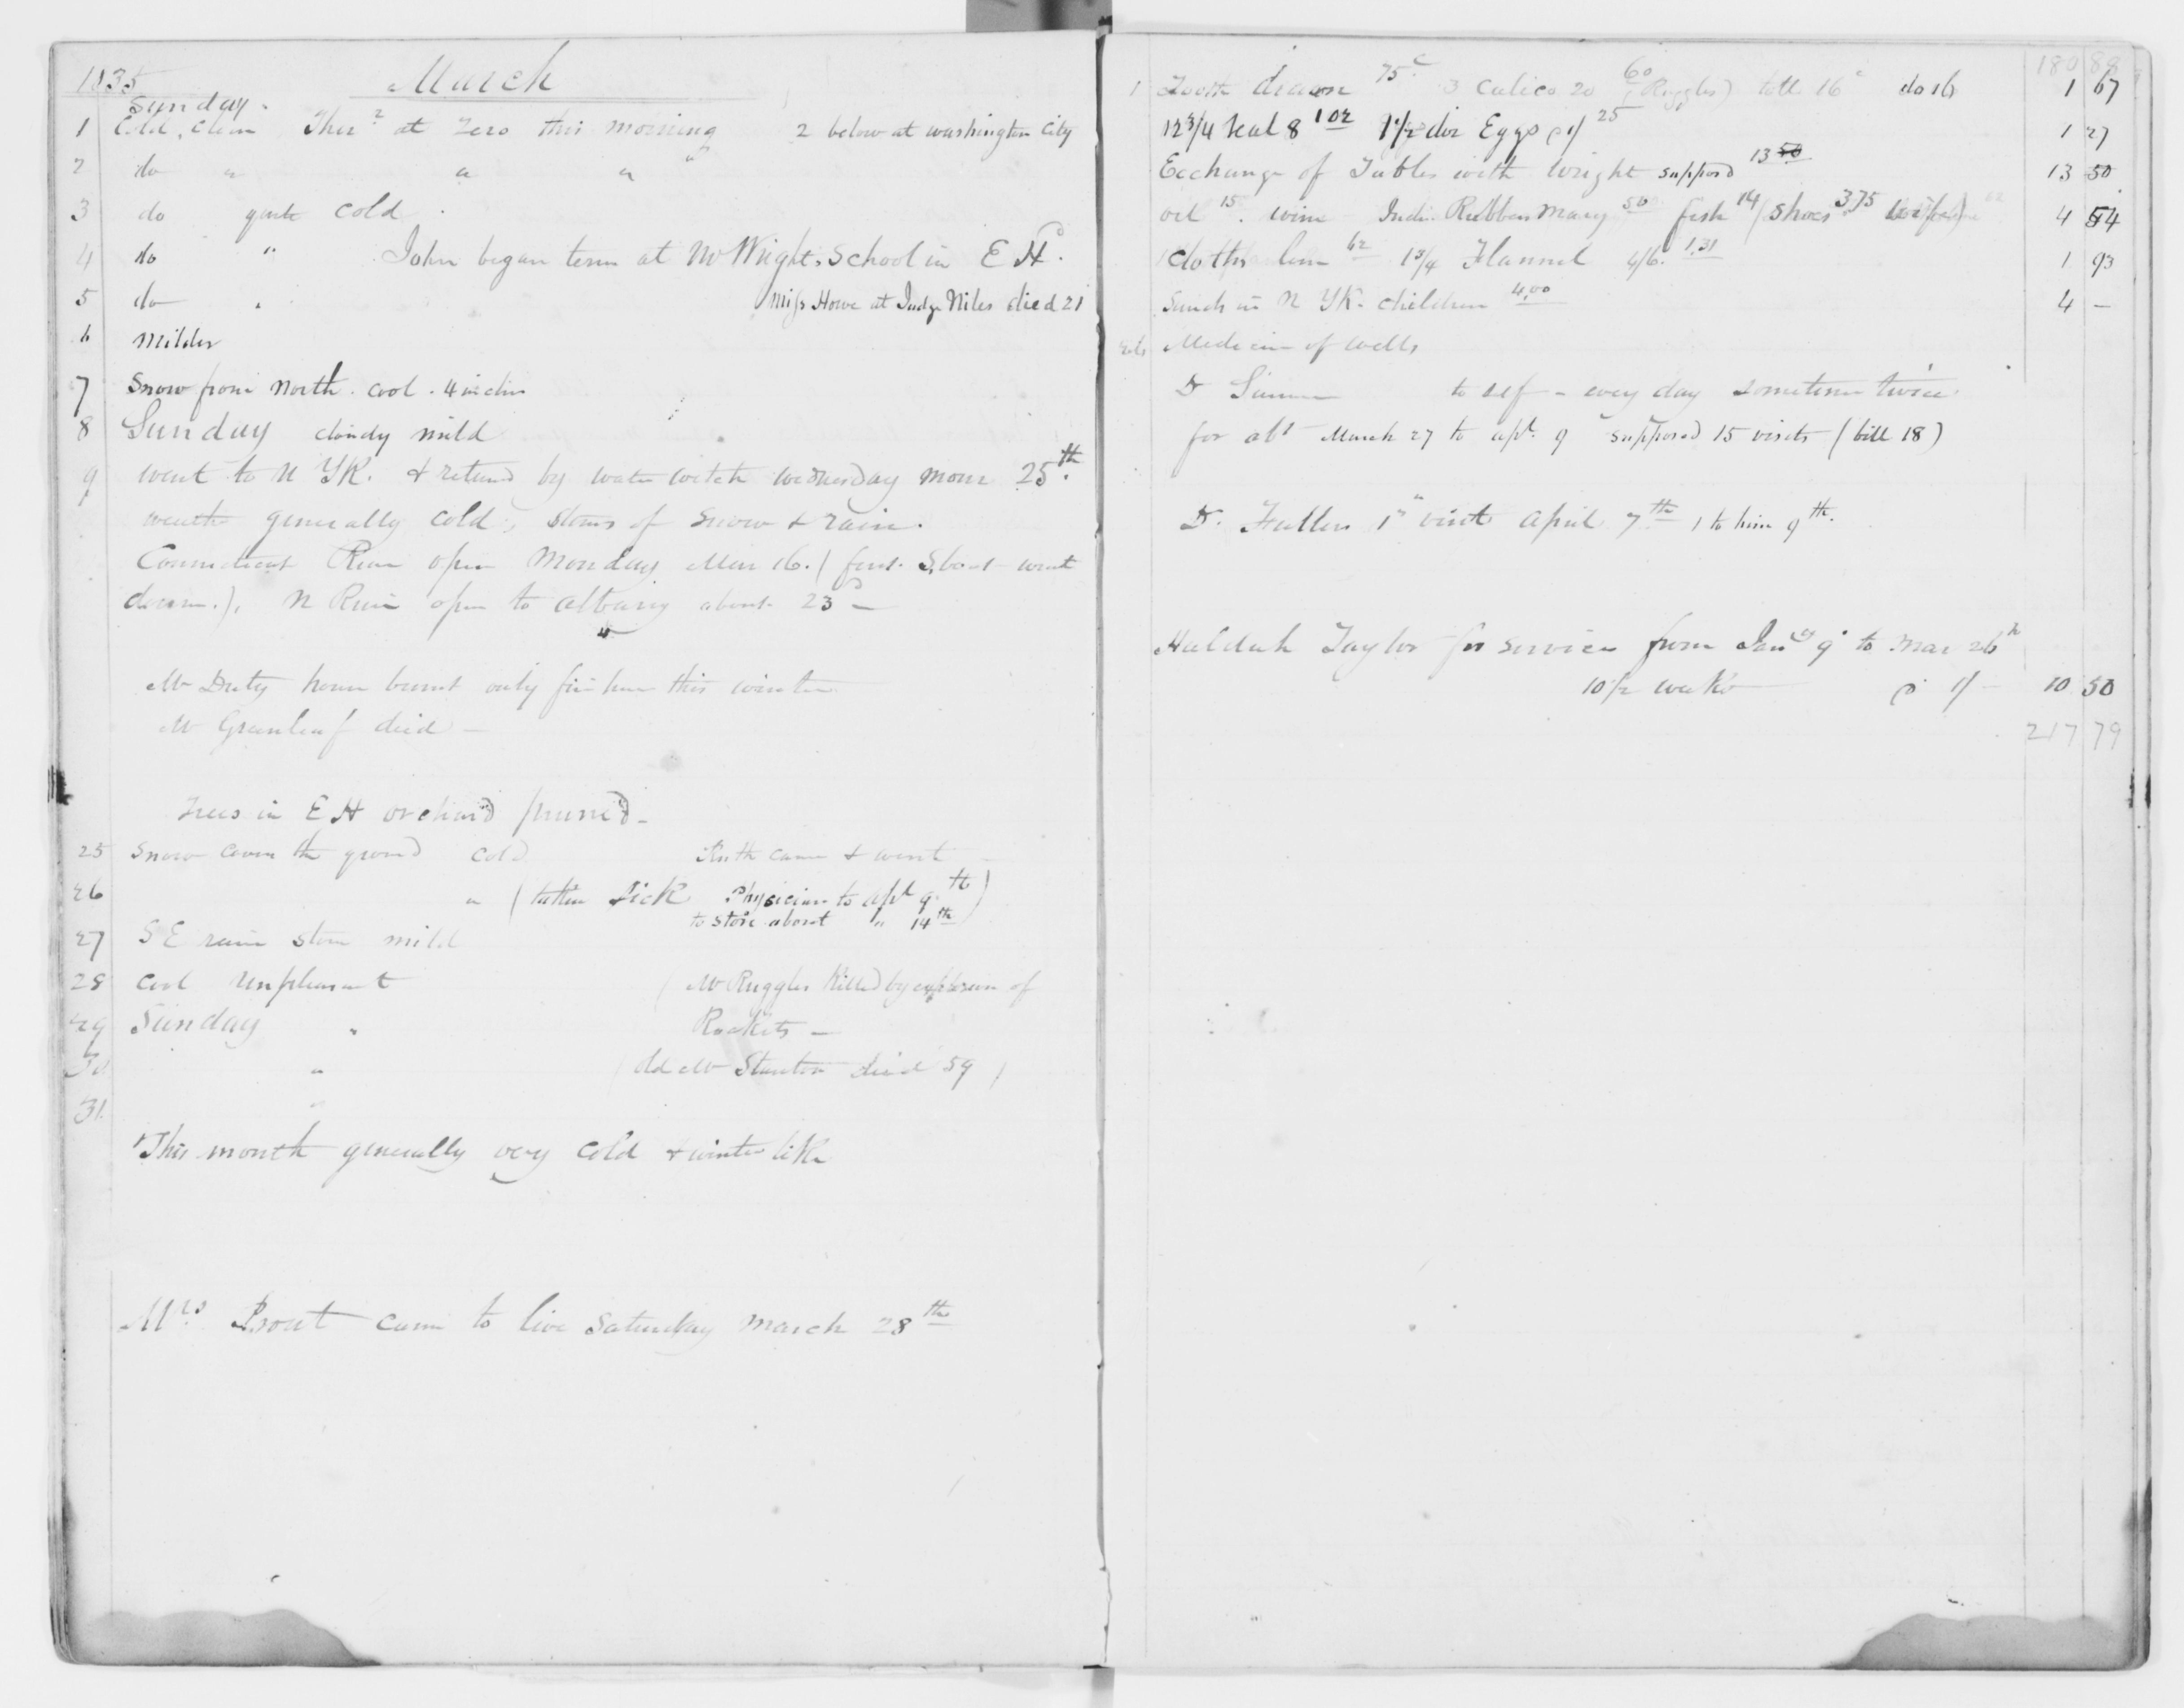 1835 March
Sunday.
1 Cold, clear Ther.r at Zero this morning 2 below at Washington City
2 do " " " "
3 do quite cold.
4 do " John began term at Mr Wright's School in E Hd.
5 do " Miss Howe at Judge Niles died 21
6 Milder
7 Snow from North. cool. 4 inches
8 Sunday cloudy mild
9 went to N YK. & returnd by water witch wednesday morn 25th.
weather generally cold, storms of snow & rain.
Connecticut River open Monday Mar 16. (first S.boat went
down.). N River open to Albany about 23d
Mr Duty house burnt only fire here this winter
Mr Greenleaf died -
Trees in E H orchard pruned -
25 Snow cover the ground cold Ruth came & went
26 " (taken sick Physician to Apl 9th)
to store about " 14th
27 S E rain storm mild
28 Cool unpleasant (Mr Ruggles Killed by explosion of
29 Sunday " Rockets -
30 " (Old Mr Stanton died 59)
31 "
This month generally very cold & winter like
Mrs. Prout came to live Saturday March 28th
180 88
1 Tooth drawn 75c. 3 Calico 20 60 (Ruggles) 16c do 16 1 67
12 3/4 Veal 8 102 1 1/2 doz Eggs @ 1/ 25 1 27
Exchange of Tables with Wright supposd 13 50 13 50
oil 15. wine India Rubbers Mary 50 fish 14 (Shoes 3.75 4 54
cloths line 62 1 3/4 Flannel 4/6. 1.31 1 93
Sunds in N YK. children 4.00 4 -
Medicine of Wells
Dr to self - every day sometimes twice
for abt March 27 to Apl. 9 supposed 15 visits (bill 18)
Dr. Fullers 1st visit April 7th 1 to him 9th.
Huldah Taylor for services from Jany 9 to Mar 26th
10 1/2 weeks @ 1/ - 10 50
217 79